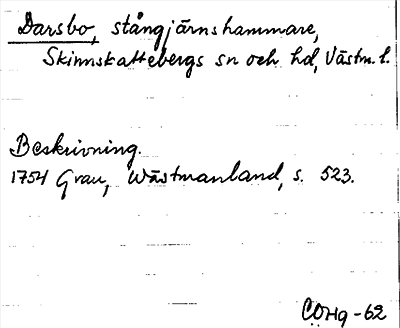 Darsbo, stångjärnshammare,
Skinnskattebergs sn och hd, Västm. l.
Beskrivning.
1754 Grau, Wästmanland, s. 523.
COHg -62